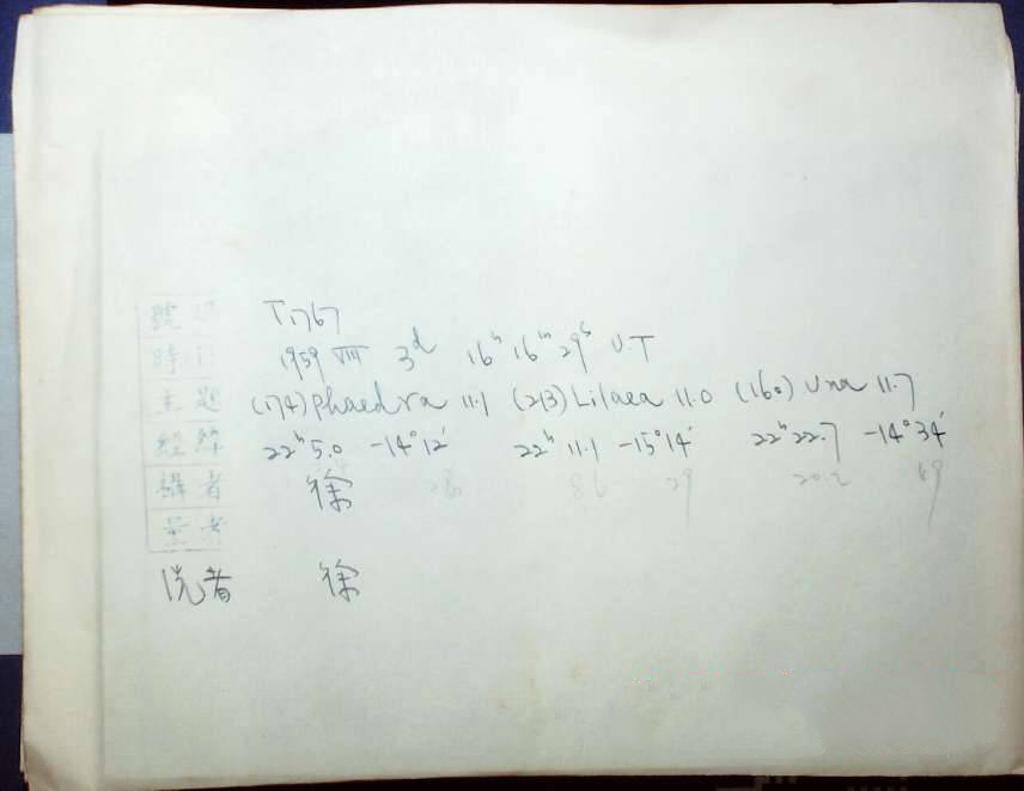 號 T1767
時 1959 VIII 3ᵈ 16ʰ 16ᵐ 29ˢ U.T
主題 (174) Phaedra 11.1 (213) Lilaea 11.0 (160) Una 11.7
經緯 22ʰ 5.0 -14°12′ 22ʰ 11.1 -15°14′ 22ʰ 22.7 -14°34′
攝者 徐
量者
洗者 徐